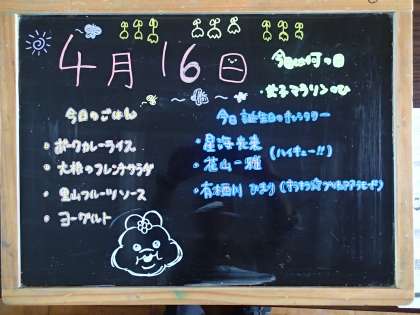 4月16日
今日は何の日
・女子マラソンの日
今日のごはん
・ポークカレーライス
・大根のフレンチサラダ
・里山フルーツソース
・ヨーグルト
今日誕生日のキャラクター
・星海光来
(ハイキュー!!)
・葛山一雅
・有栖川 ひまり (キラキラ☆プリキュアアラモード)